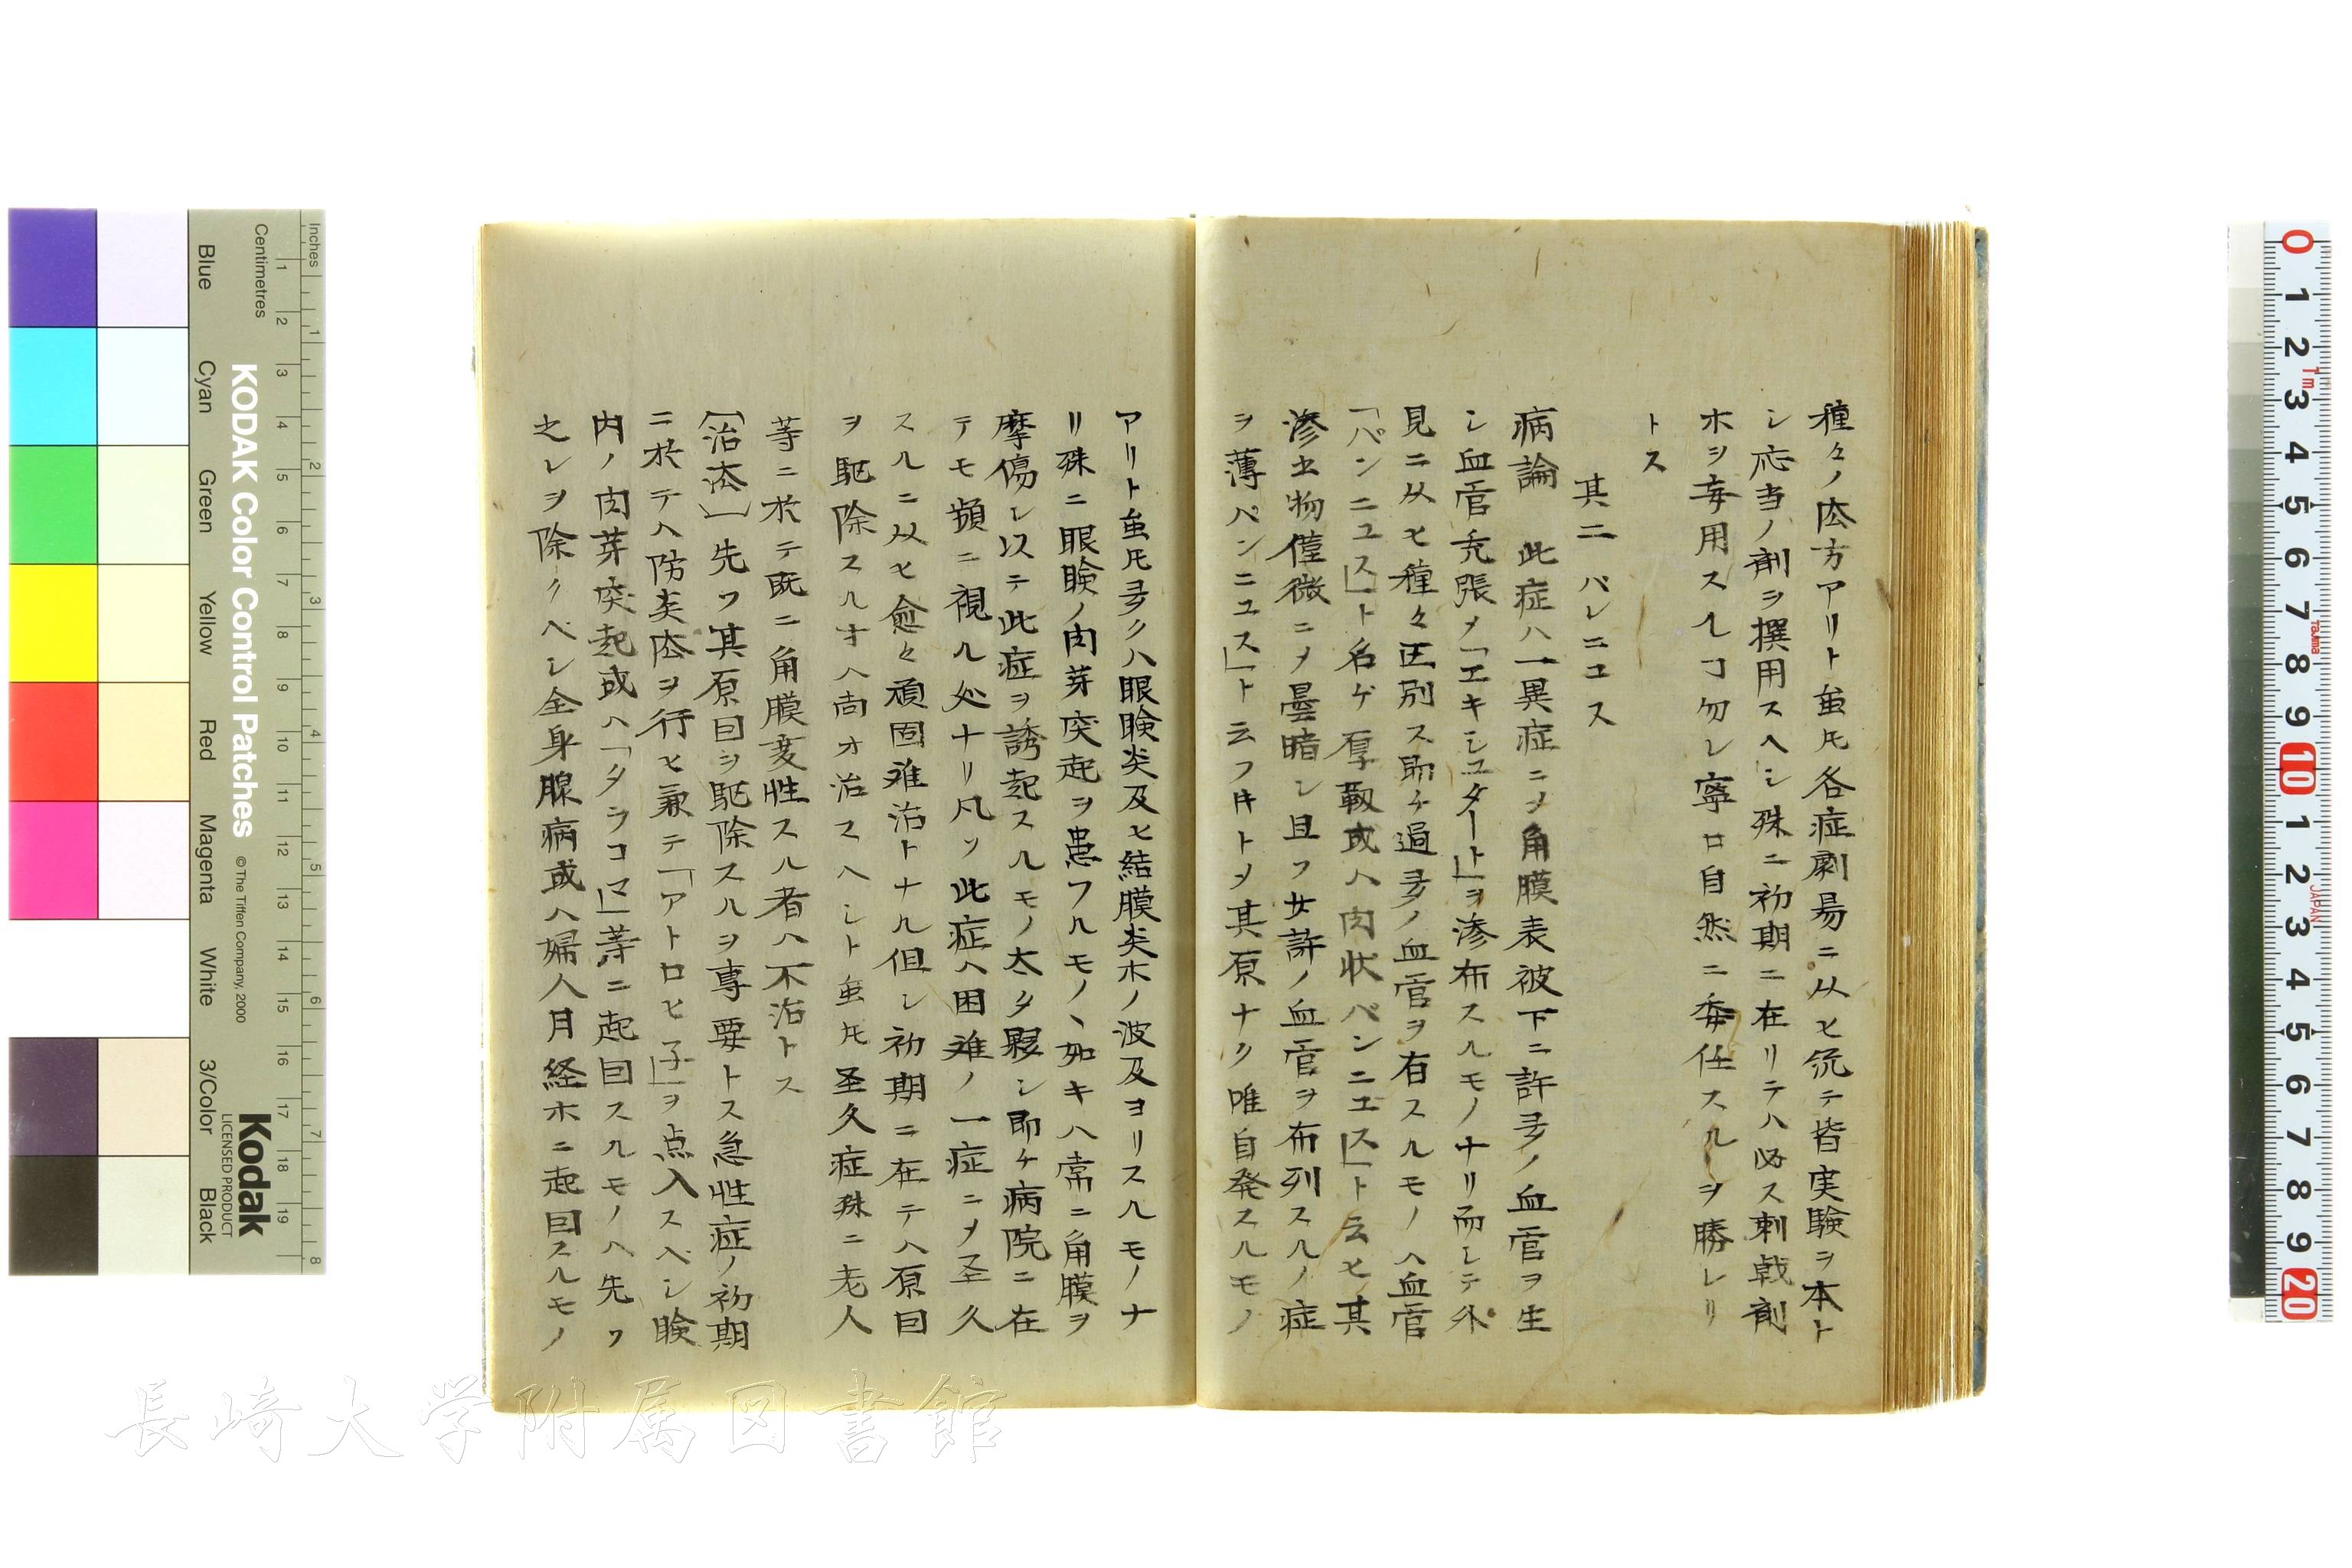 種々ノ法方アリト虽𪜈各症劇易ニ从ヒ統テ皆実験ヲ本ト
シ応当ノ剤ヲ撰用スヘシ殊ニ初期ニ在リテハ必ス刺戟剤
ホヲ妄用スルヿ勿レ寧ロ自然ニ委任スルヲ勝レリ
トス
其二 パレニユス
病論 此症ハ一異症ニシテ角膜表被下ニ許多ノ血管ヲ生
シ血管充張メ「エキシユダート」ヲ滲布スルモノナリ而シテ外
見ニ从ヒ種々区別ス即チ過多ノ血管ヲ有スルモノヘ血管
「パンニユス」ト名ゲ厚靱或ハ肉状パンニユス」ト云ヒ其
滲出物僅微ニメ曇暗シ且ツ少許ノ血管ヲ布列スルノ症
ヲ薄パンニユス」ト云フ其原ナク唯自発スルモノ
アリト虽𪜈多クハ眼瞼炎及ヒ結膜炎ホノ波及ヨリスルモノナ
リ殊ニ眼瞼ノ肉芽突起ヲ患フルモノヽ如キハ常ニ角膜ヲ
摩傷シ以テ此症ヲ誘起スルモノ太タ夥シ即チ病院ニ在
テモ頻ニ視ル処ナリ凡ソ此症ヘ困難ノ一症ニメ至久
スルニ从ヒ愈々頑固難治トナル但シ初期ニ在テヘ原因
ヲ駆除スルオハ尚オ治スヘシト虽𪜈至久症殊ニ老人
等ニ於テ既ニ角膜変性スル者ハ不治トス
〔治法〕先ツ其原因ヲ駆除スルヲ専要トス急性症ノ初期
ニ於テハ防炎法ヲ行ヒ兼テ「アトロヒ子」ヲ点入スベシ瞼
内ノ肉芽突起或ヘ「タラコマ」等ニ起因スルモノヘ先ツ
之レヲ除クベシ全身腺病或ハ婦人月経ホニ起因スルモノ
KODAK Color Control Patches
© The Tiffen Company, 2000
Kodak
LICENSED PRODUCT
Inches 1 2 3 4 5 6 7 8
Centimetres 1 2 3 4 5 6 7 8 9 10 11 12 13 14 15 16 17 18 19
Blue Cyan Green Yellow Red Magenta White 3/Color Black
0 1 2 3 4 5 6 7 8 9 10 1 2 3 4 5 6 7 8 9 20
1m Tajima JAPAN
長崎大学附属図書館